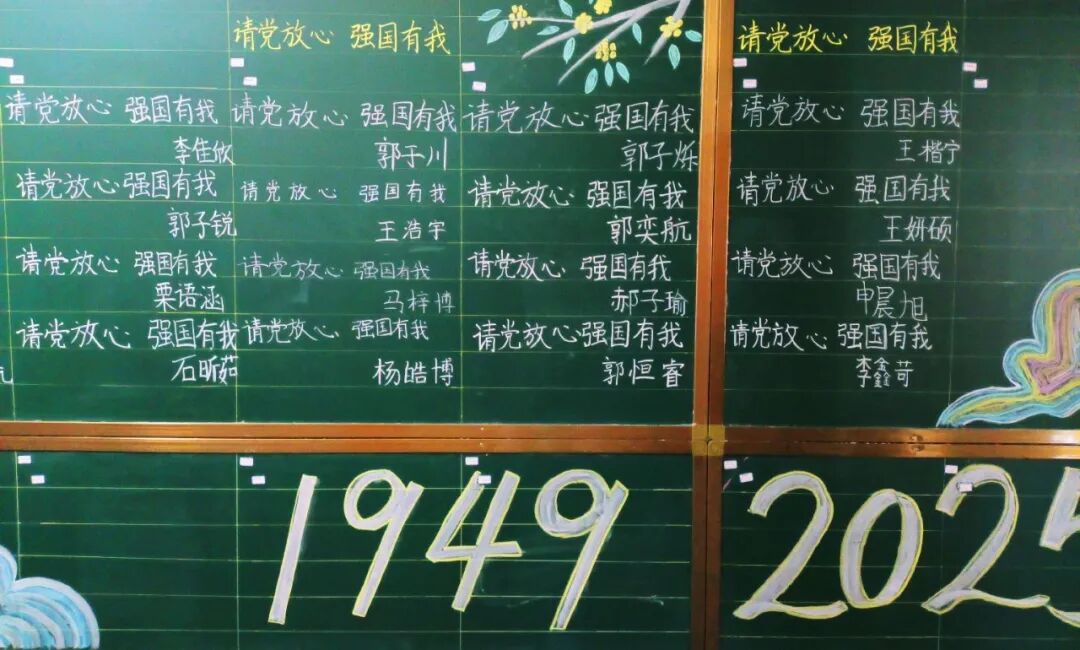 请党放心 强国有我
请党放心 强国有我
请党放心 强国有我
请党放心 强国有我
请党放心 强国有我
请党放心 强国有我
李佳欣
郭于川
郭子烁
王楷宁
请党放心 强国有我
请党放心 强国有我
请党放心 强国有我
请党放心 强国有我
郭子锐
王浩宇
郭奕航
王妍硕
请党放心 强国有我
请党放心 强国有我
请党放心 强国有我
请党放心 强国有我
栗语涵
马梓博
郝子瑜
申晨旭
请党放心 强国有我
请党放心 强国有我
请党放心 强国有我
请党放心 强国有我
石昕茹
杨皓博
郭恒睿
李鑫苛
1949
2025